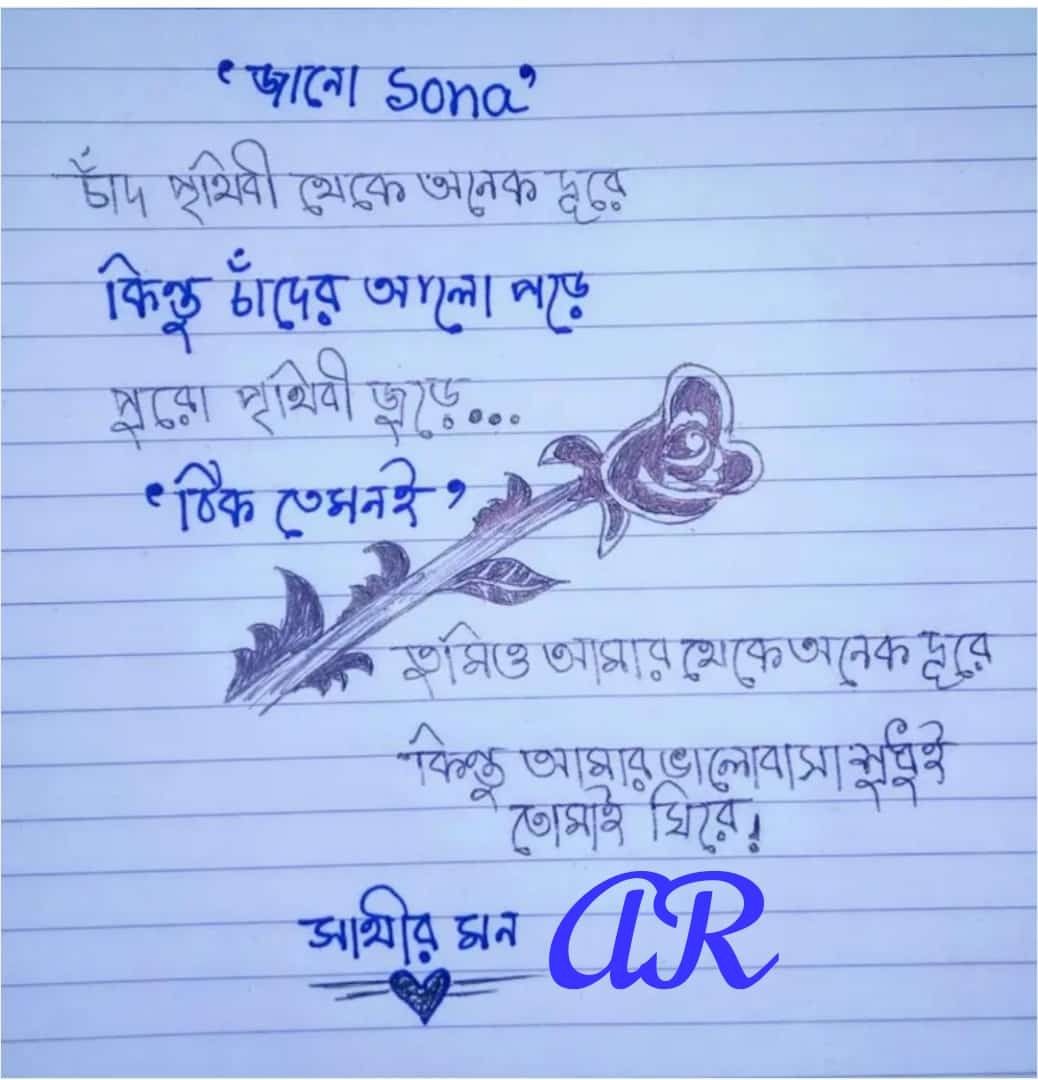 ‘জানো Sona’
চাঁদ পৃথিবী থেকে অনেক দূরে
কিন্তু চাঁদের আলো পড়ে
পুরো পৃথিবী জুড়ে...
‘ঠিক তেমনই’
তুমিও আমার থেকে অনেক দূরে
কিন্তু আমার ভালোবাসা শুধুই
তোমাই ঘিরে!
সাথীর মন AR